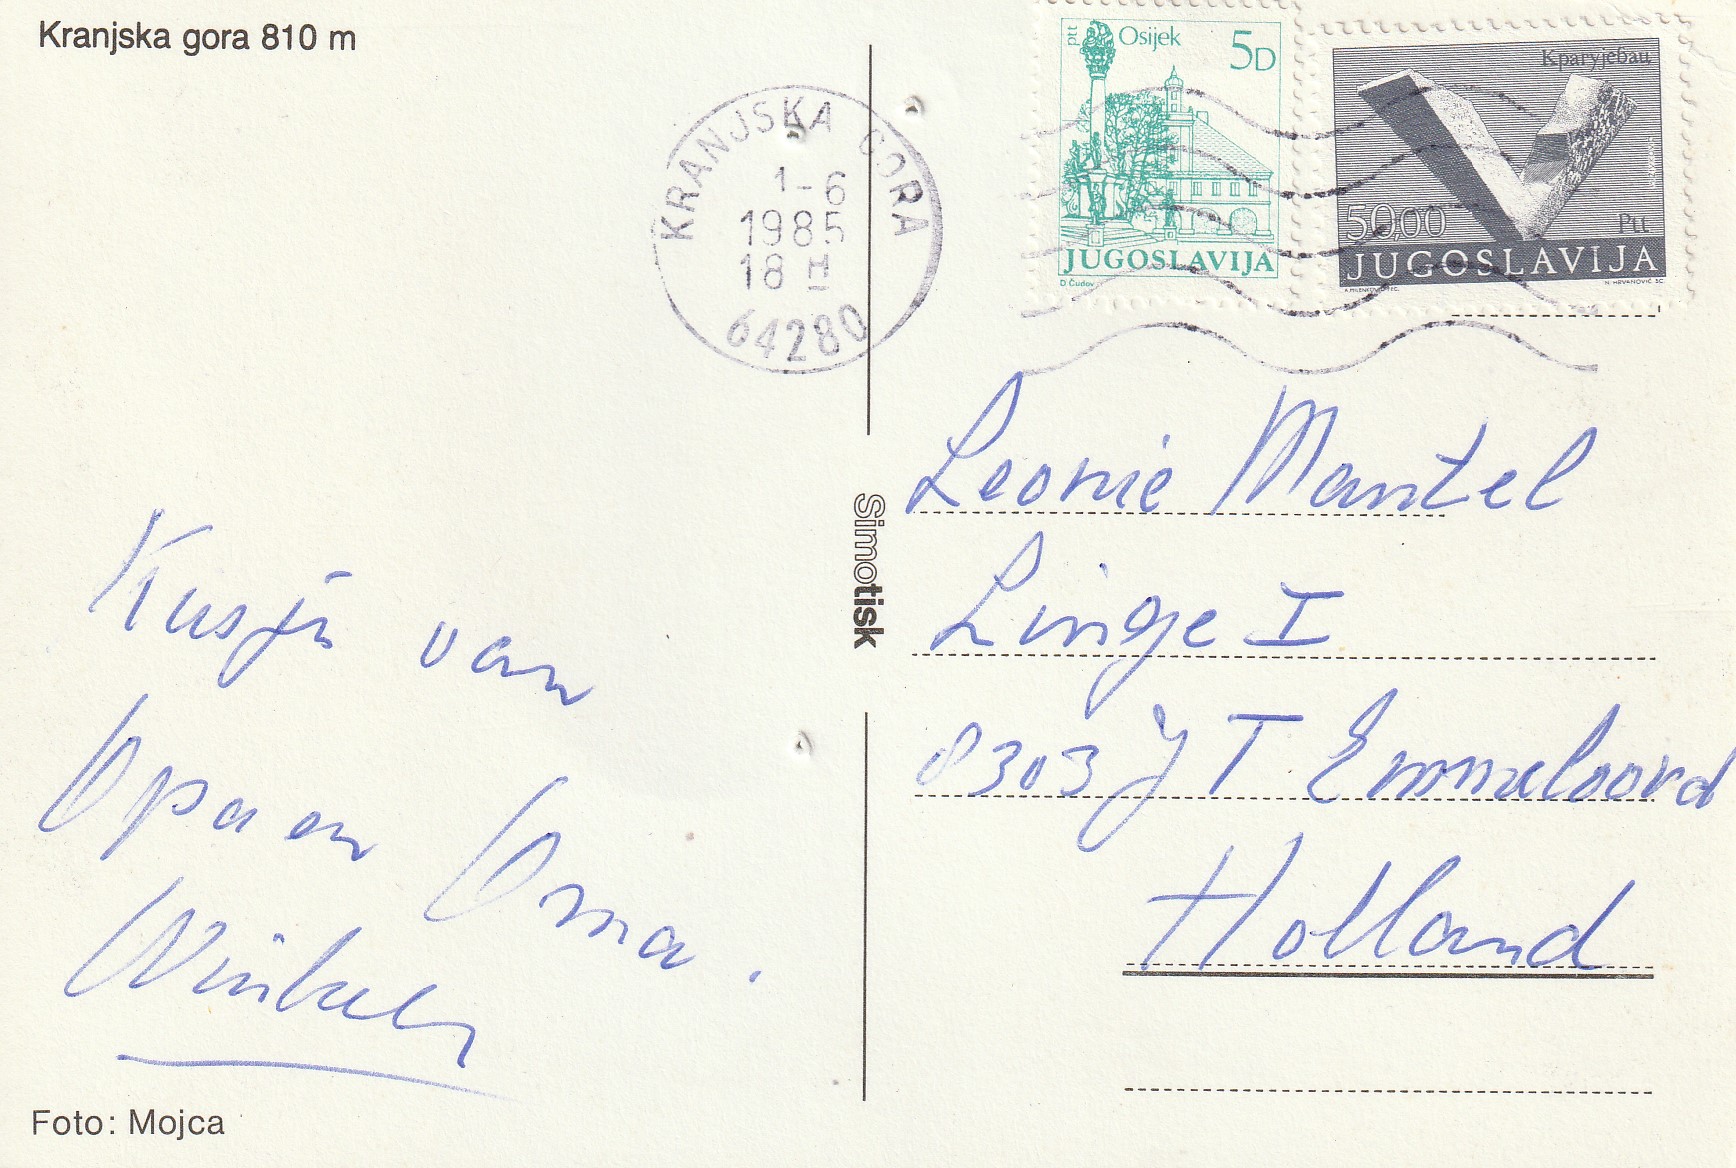 Kranjska gora 810 m
KRANJSKA GORA
1-6
1985
18 H
64280
ptt Osijek 5D
JUGOSLAVIJA
D Čudov
Крагујевац
50,00 Ptt
JUGOSLAVIJA
N. HRVANOVIĆ SC.
Simotisk
Leonie Mantel
Linge I
8303 JT Emmeloord
Holland
Kusjes van
Opa en Oma.
Winkel
Foto: Mojca